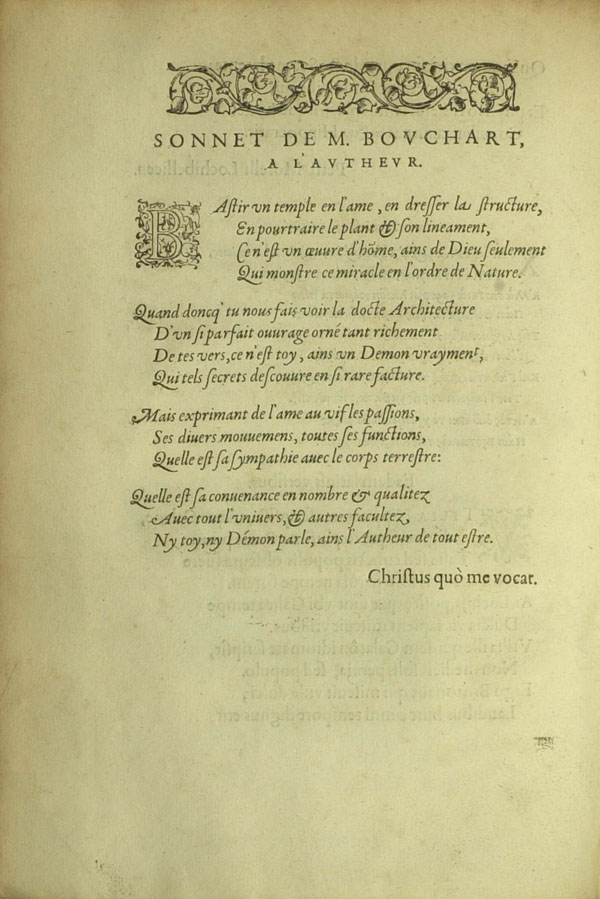 SONNET DE M. BOVCHART,
A L'AVTHEVR.
BAſtir vn temple en l'ame, en dreſſer la ſtructure,
En pourtraire le plant & ſon lineament,
Ce n'eſt vn œuure d'hõme, ains de Dieu ſeulement
Qui monſtre ce miracle en l'ordre de Nature.
Quand doncq' tu nous fais voir la docte Architecture
D'vn ſi parfait ouurage orné tant richement
De tes vers, ce n'eſt toy, ains vn Demon vrayment,
Qui tels ſecrets deſcouure en ſi rare facture.
Mais exprimant de l'ame au vif les paſſions,
Ses diuers mouuemens, toutes ſes functions,
Quelle eſt ſa ſympathie auec le corps terreſtre:
Quelle eſt ſa conuenance en nombre & qualitez
Auec tout l'vniuers, & autres facultez,
Ny toy, ny Démon parle, ains l'Autheur de tout eſtre.
Chriſtus quò me vocat.